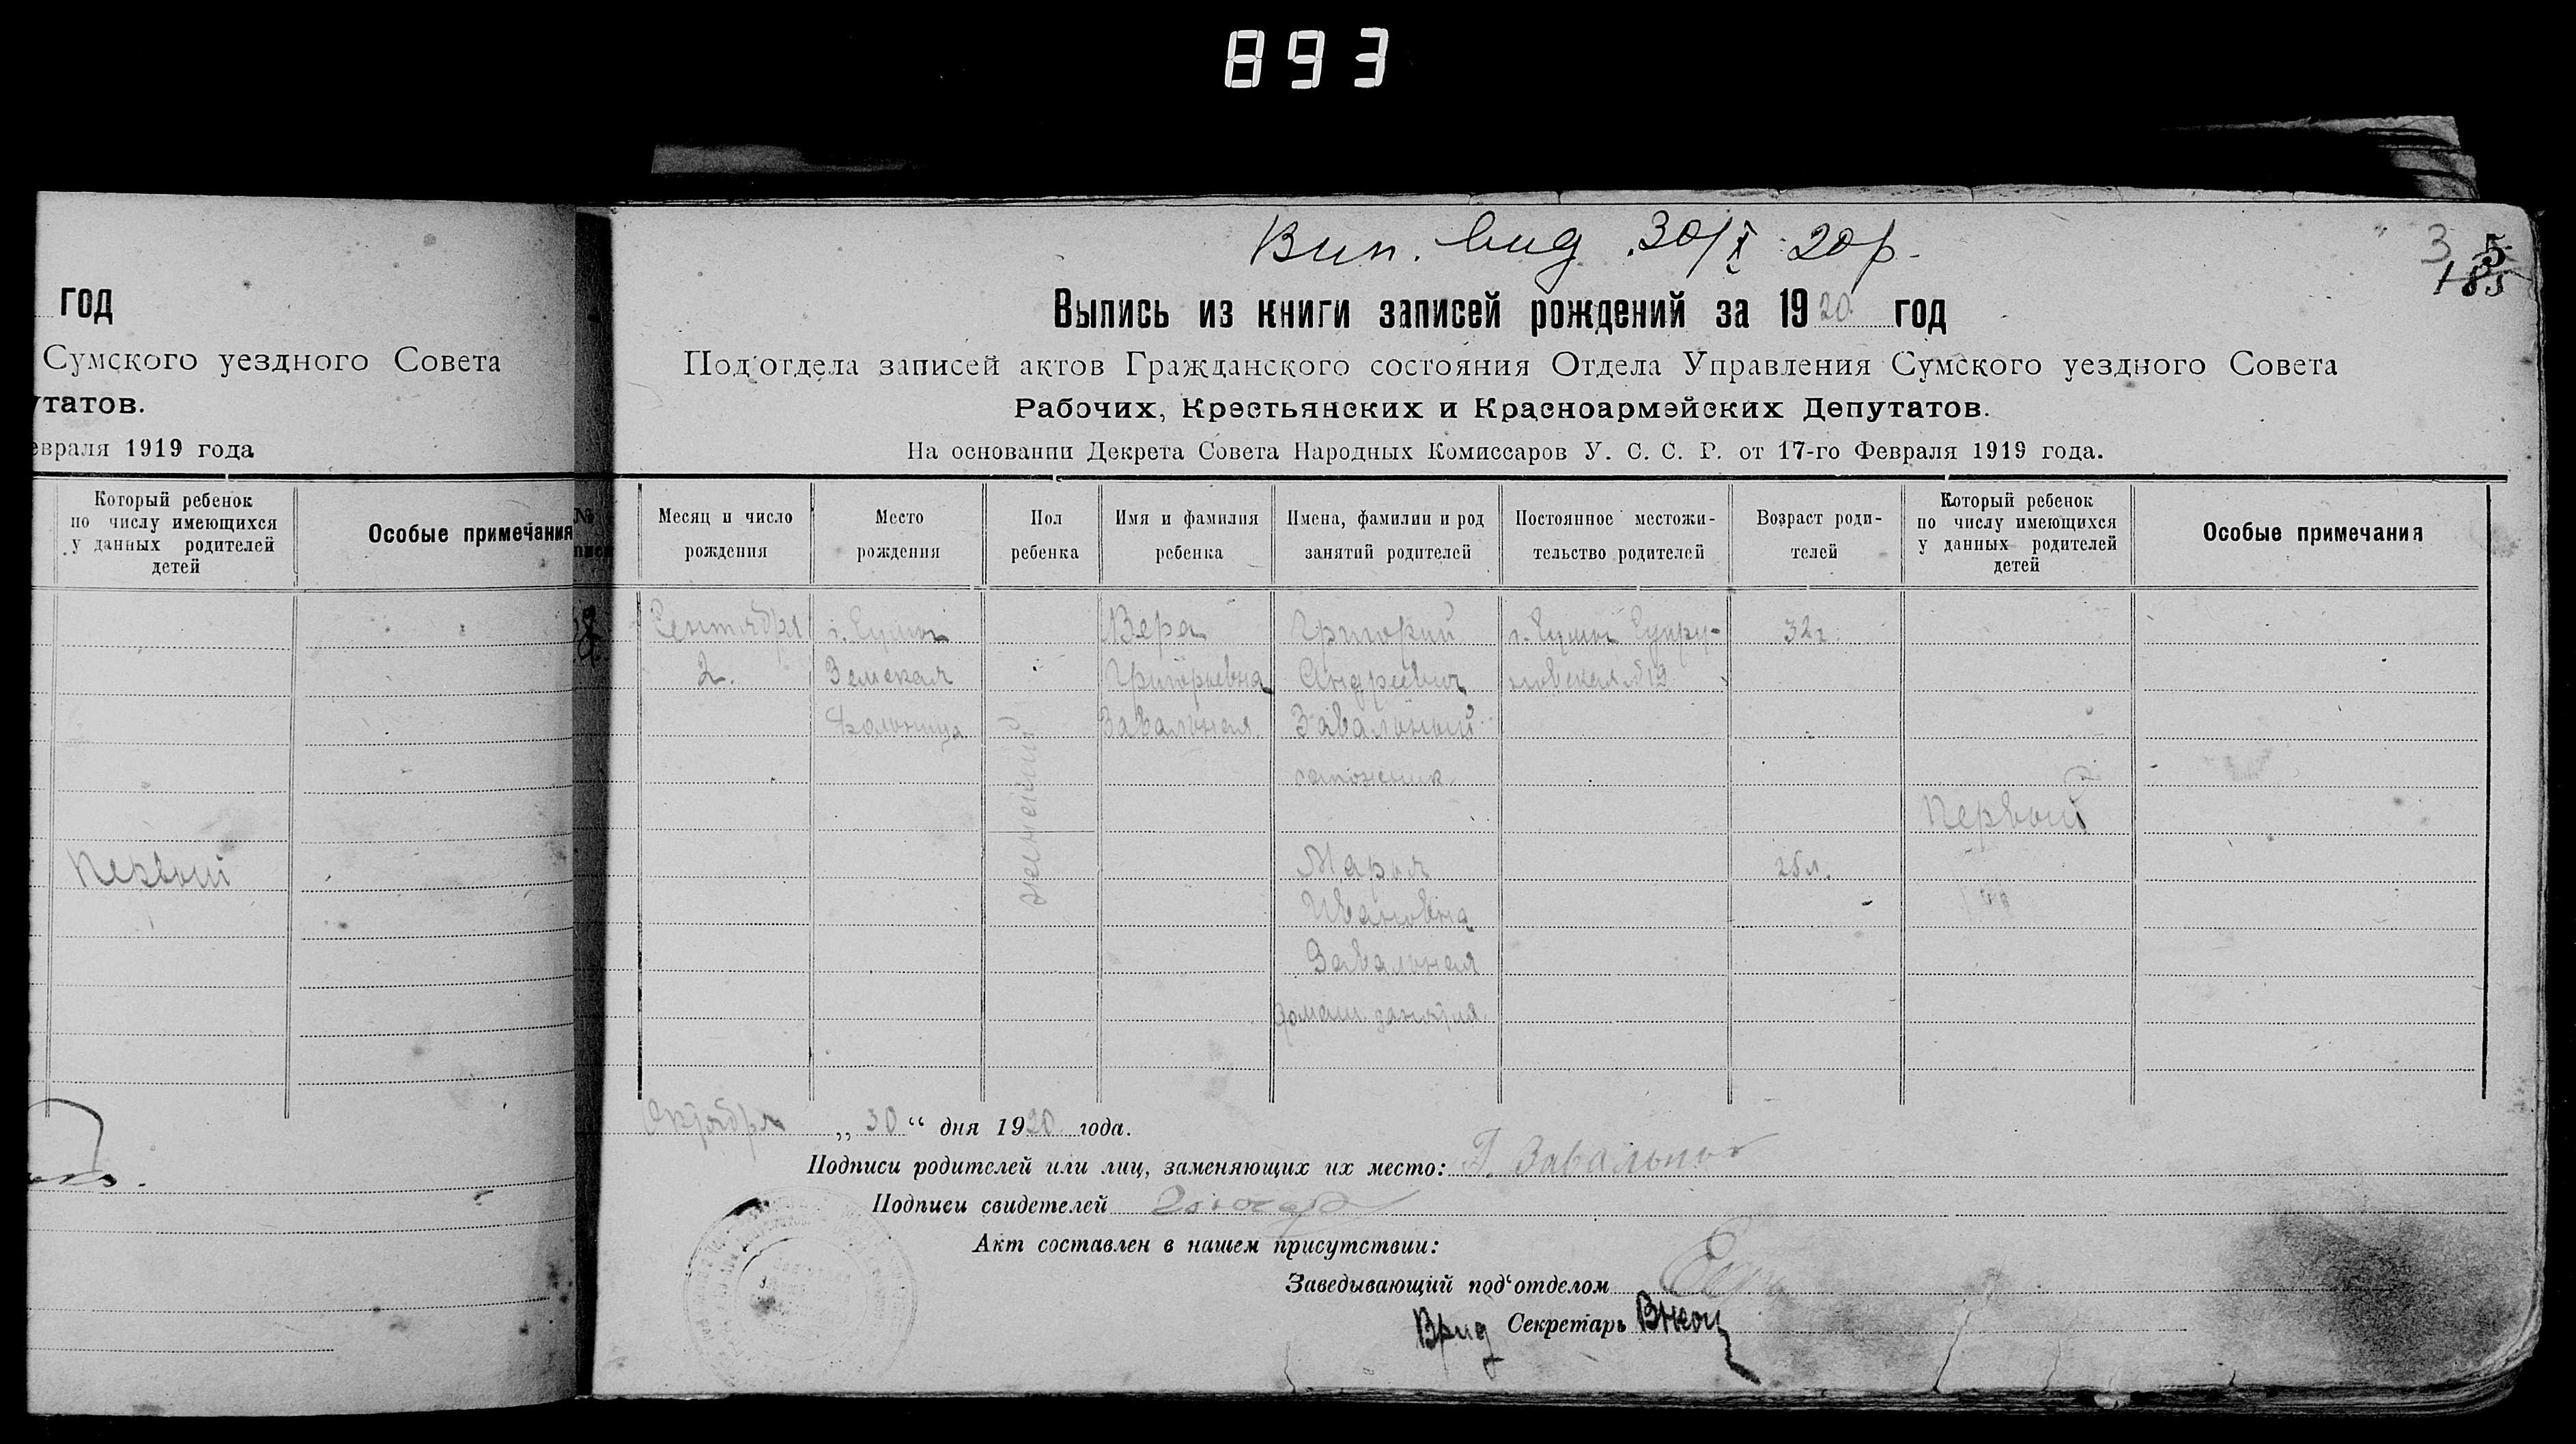 893
год
Сумского уездного Совета
утатов.
евраля 1919 года
Который ребенок
по числу имеющихся
у данных родителей
детей
Особые примечания
Первый
Вип. вид. 30/X 20 р.
3 5
185
Выпись из книги записей рождений за 1920 год
Под'отдела записей актов Гражданского состояния Отдела Управления Сумского уездного Совета
Рабочих, Крестьянских и Красноармейских Депутатов.
На основании Декрета Совета Народных Комиссаров У. С. С. Р. от 17-го Февраля 1919 года.
№
Месяц и число
рождения
Место
рождения
Пол
ребенка
Имя и фамилия
ребенка
Имена, фамилии и род
занятий родителей
Постоянное местожи-
тельство родителей
Возраст роди-
телей
Который ребенок
по числу имеющихся
у данных родителей
детей
Особые примечания
Сентября
2.
г. Сумы
Земская
больница
женский
Вера
Григорьевна
Завальная
Григорий
Андреевич
Завальный
сапожник
Марья
Ивановна
Завальная
домаш. занятия
г. Сумы Супру-
новская №19
32 г.
25 л.
Первый
Октября „30“ дня 1920 года.
Подписи родителей или лиц, заменяющих их место: Г. Завальный
Подписи свидетелей
Акт составлен в нашем присутствии:
Заведывающий под'отделом
Врид Секретарь